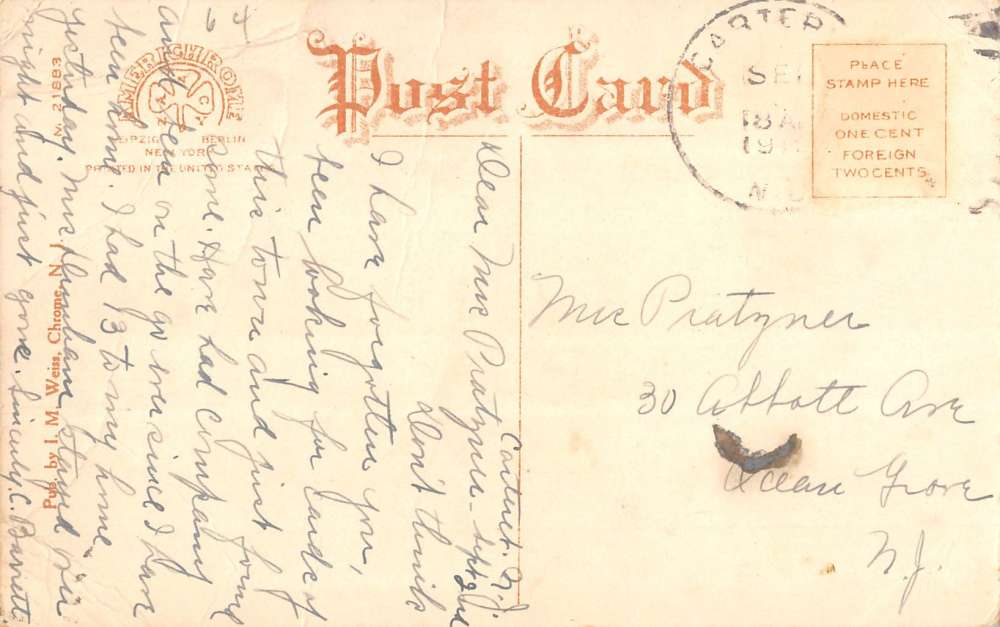 Post Card
AMERICHROME
LEIPZIG BERLIN
NEW YORK
PRINTED IN THE UNITED STATES
CARTER
SE
18 A
19
N
PLACE
STAMP HERE
DOMESTIC
ONE CENT
FOREIGN
TWO CENTS
Carteret. N.J.
Dear Mrs Pratzner - Sept 2nd
Don't think
I have forgotten you,
been looking for cards of
this town and just found
some. Have had company
and been on the go ever since I have
been home. I had 13 to my home
yesterday. Mrs Dunham stayed over
night and just gone. Sincerely C. Barrett
Mrs Pratzner
30 Abbott Ave
Ocean Grove
N.J.
N 21883
Pub. by I. M. Weiss, Chrome, N. J.